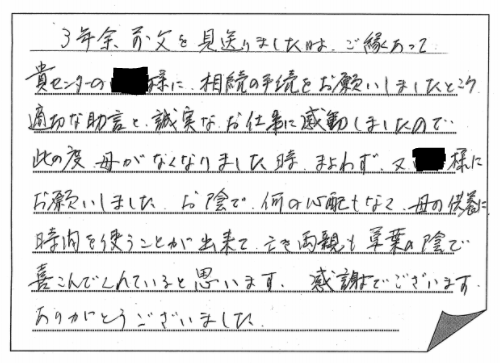 3年余 前 父を見送りました時、ご縁あって
貴センターの 様に、相続の手続をお願いしましたところ
適切な助言と、誠実な お仕事に感動しましたので
此の度 母がなくなりました時 まよわず、又 様に
お願いしました お陰で、何の心配もなく、母の供養に
時間を使うことが出来て 亡き両親も 草葉の陰で
喜こんでくれていると思います。 感謝でございます
ありがとうございました